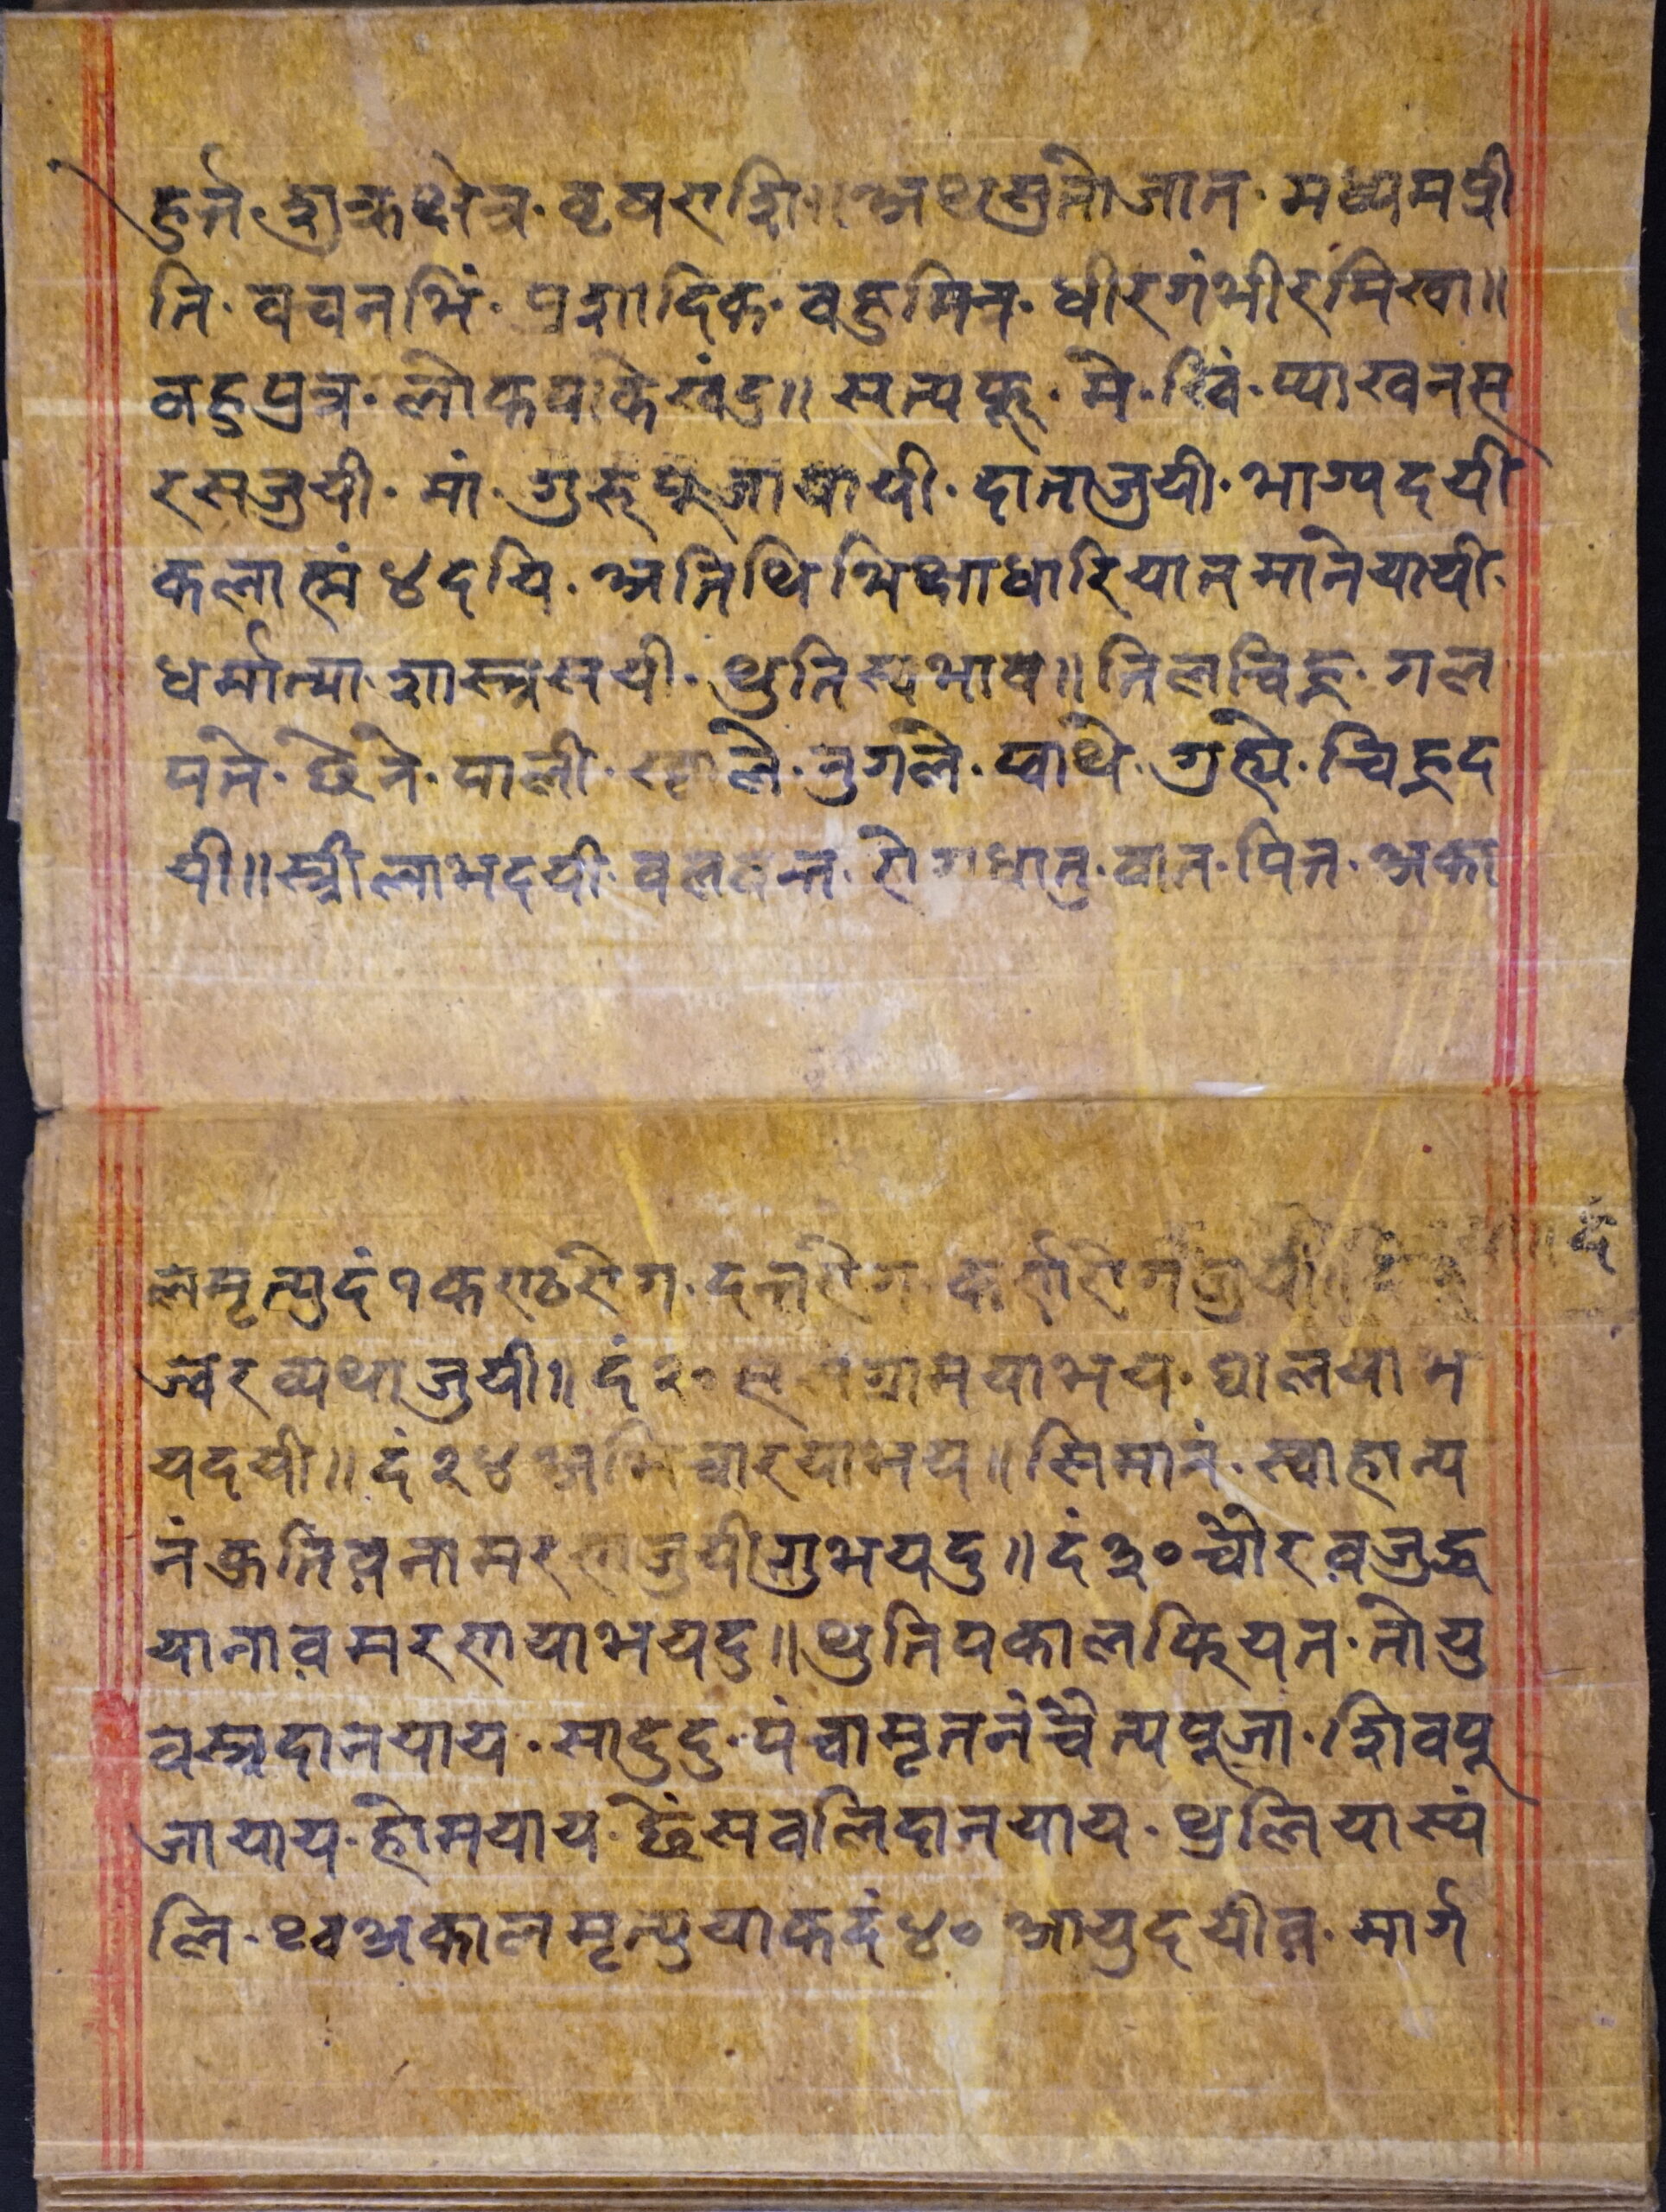 हुर्त्त. शुक्रक्षेत्र. वृषराशि॥ अथशुतोजात. मध्यमप्री
ति. वचनभिं. प्रज्ञादिक. वहुमित्र. धीरगंभीरमिखा॥
वहुपुत्र. लोकयाके खंदु॥ सत्यफू. मे. ख्विं. प्याखनस
रसजुयी. मां. गुरुपूजायायी. दाताजुयी. भाग्यदयी
कलात्मं ४ दयि. अतिथिभिक्षाधारियातमानेयायी.
धर्मात्मा. शास्त्रसयी. थुतिस्वभाव॥ तिलचिह्न. गल
पते. छेने. पाली. ले. नुगले. प्वाथे. गुह्ये. चिह्नद
यी॥ स्त्रीलाभदयी. वलवन्त. रोगधातु. वात. पित्त. अका
लमृत्युदं १ कण्ठरोग. दन्तरोग. कर्णरोगजुयी॥ दं
ज्वरव्यथाजुयी॥ दं २० संग्रामयाभय. घालयाभ
यदयी॥ दं २४ अभिचारयाभय॥ सिमानं. स्वाहान्य
नं क्रुतिव़नामरणजुयीगुभयदु॥ दं ३० चौरव़जुद्ध
यानाव़मरणयाभयदु॥ थुतिपकालफियत. तोयु
वस्त्रदानयाय. सादुदु. पंचामृतनंचैत्यपूजा. शिवपू
जायाय. होमयाय. छेंसवलिदानयाय. थुलियास्यं
लि. थ्वअकालमृत्युयाकदं ४० आयुदयीव़. मार्ग